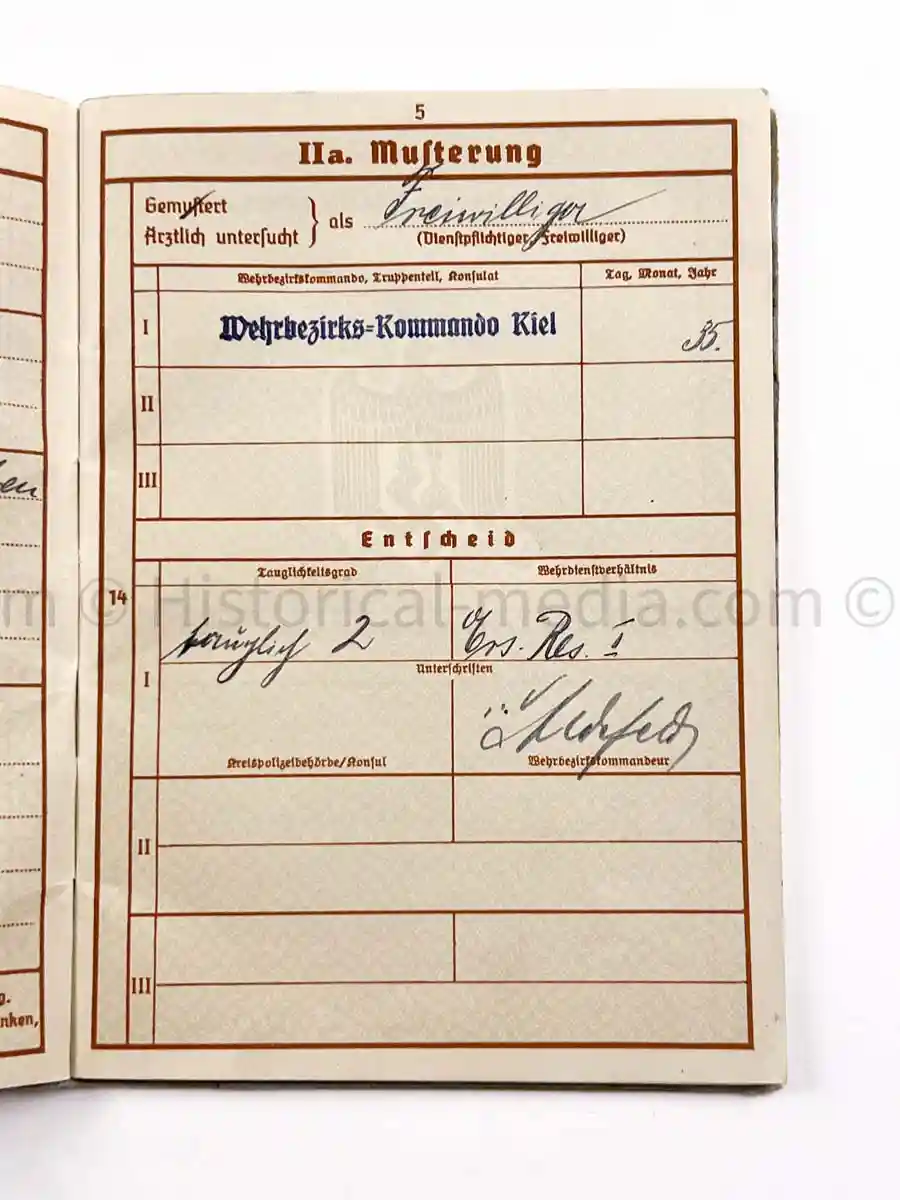 5
IIa. Musterung
Gemustert
Ärztlich untersucht } als Freiwilliger
(Dienstpflichtiger, Freiwilliger)
Wehrbezirkskommando, Truppenteil, Konsulat
Tag, Monat, Jahr
I
Wehrbezirks=Kommando Kiel
35.
II
III
Entscheid
Tauglichkeitsgrad
Wehrdienstverhältnis
14
© Historical-media.com ©
tauglich 2
Ers. Res. I
Unterschriften
I
Kreispolizeibehörde/Konsul
Wehrbezirkskommandeur
II
III
en
g.
nken,